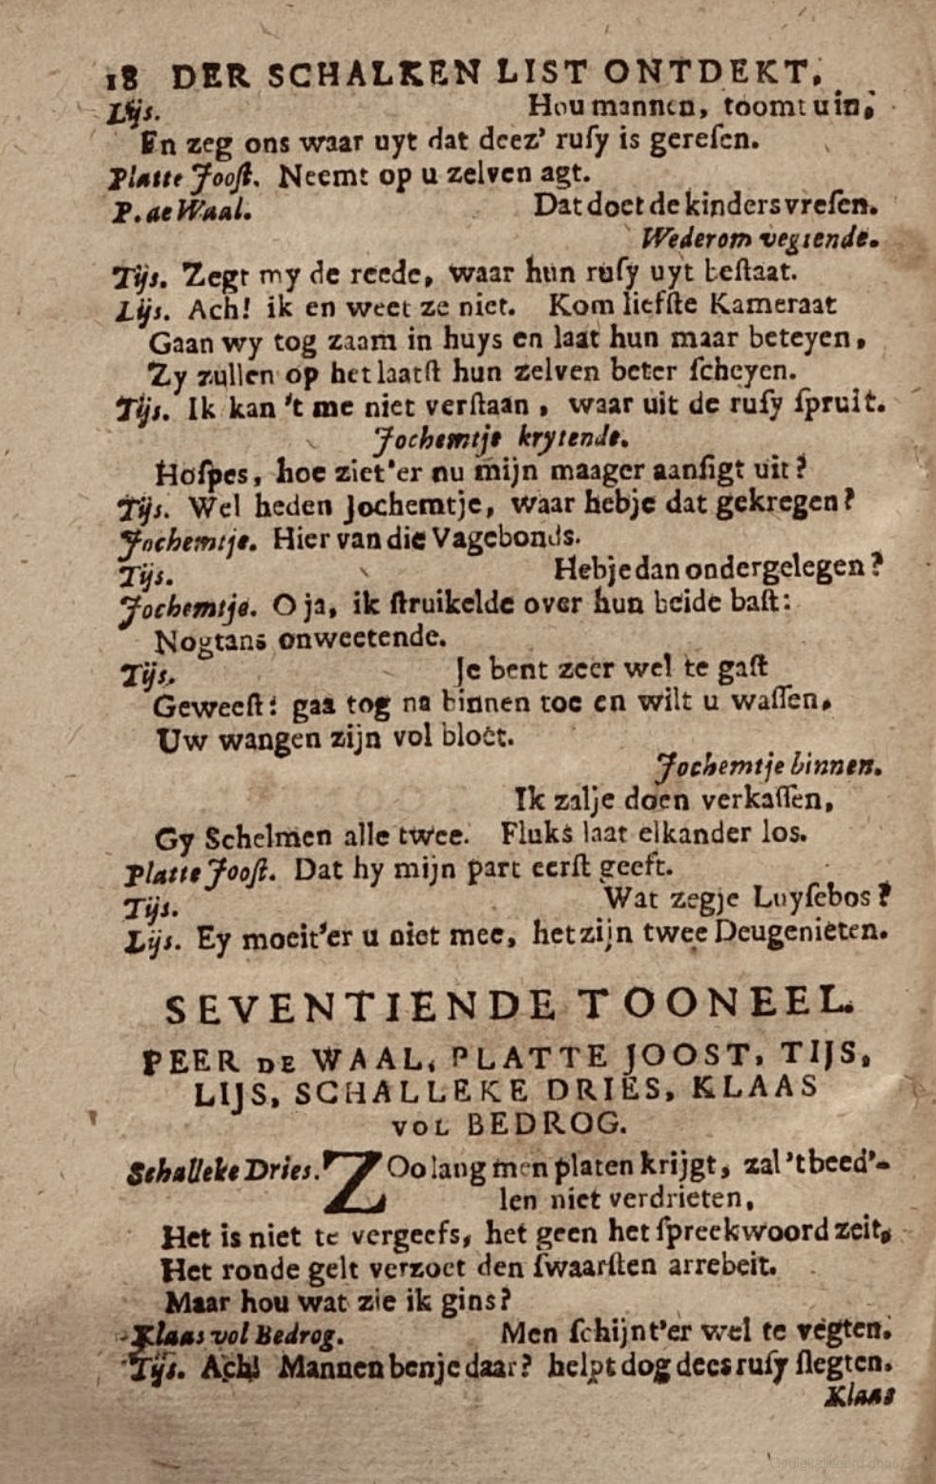 18 DER SCHALKEN LIST ONTDEKT.
Lijs. Hou mannen, toomt u in;
En zeg ons waar uyt dat deez' ruſy is gereſen.
Platte Jooſt. Neemt op u zelven agt.
P. de Waal. Dat doet de kinders vreſen.
Wederom vegtende.
Tijs. Zegt my de reede, waar hun ruſy uyt beſtaat.
Lijs. Ach! ik en weet ze niet. Kom liefſte Kameraat
Gaan wy tog zaam in huys en laat hun maar beteyen,
Zy zullen op het laatſt hun zelven beter ſcheyen.
Tijs. Ik kan 't me niet verſtaan, waar uit de ruſy ſpruit.
Jochemtje krytende.
Hoſpes, hoe ziet'er nu mijn maager aanſigt uit?
Tijs. Wel heden Jochemtje, waar hebje dat gekregen?
Jochemtje. Hier van die Vagebonds.
Tijs. Hebje dan ondergelegen?
Jochemtje. O ja, ik ſtruikelde over hun beide baſt:
Nogtans onweetende.
Tijs. Je bent zeer wel te gaſt
Geweeſt: gaa tog na binnen toe en wilt u waſſen,
Uw wangen zijn vol bloet.
Jochemtje binnen.
Ik zalje doen verkaſſen,
Gy Schelmen alle twee. Fluks laat elkander los.
Platte Jooſt. Dat hy mijn part eerſt geeft.
Tijs. Wat zegje Luyſebos?
Lijs. Ey moeit'er u niet mee, het zijn twee Deugenieten.
SEVENTIENDE TOONEEL.
PEER DE WAAL, PLATTE JOOST, TIJS,
LIJS, SCHALLEKE DRIES, KLAAS
VOL BEDROG.
Schalleke Dries. ZOo lang men platen krijgt, zal 't beed'-
len niet verdrieten,
Het is niet te vergeefs, het geen het ſpreekwoord zeit,
Het ronde gelt verzoet den ſwaarſten arrebeit.
Maar hou wat zie ik gins?
Klaas vol Bedrog. Men ſchijnt'er wel te vegten.
Tijs. Ach! Mannen benje daar? helpt dog dees ruſy ſlegten.
Klaas